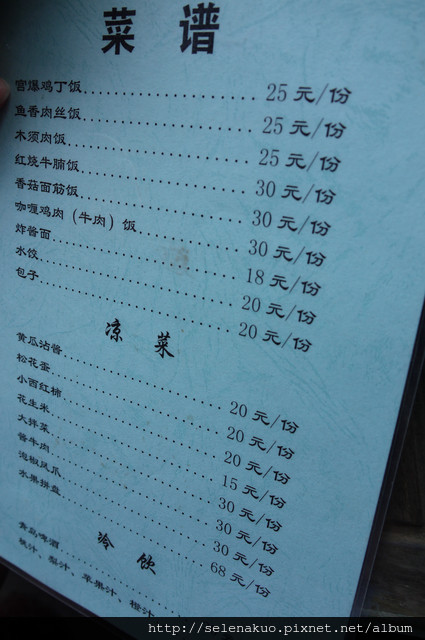 菜 谱
宫爆鸡丁饭........................25 元/份
鱼香肉丝饭........................25 元/份
木须肉饭........................25 元/份
红烧牛腩饭........................30 元/份
香菇面筋饭........................30 元/份
咖喱鸡肉(牛肉)饭........................30 元/份
炸酱面........................18 元/份
水饺........................20 元/份
包子........................20 元/份
凉 菜
黄瓜沾酱........................20 元/份
松花蛋........................20 元/份
小西红柿........................20 元/份
花生米........................15 元/份
大拌菜........................30 元/份
酱牛肉........................30 元/份
泡椒凤爪........................30 元/份
水果拼盘........................68 元/份
冷 饮
青岛啤酒........................
桃汁、梨汁、苹果汁、橙汁
http://selenakuo.pixnet.net/album